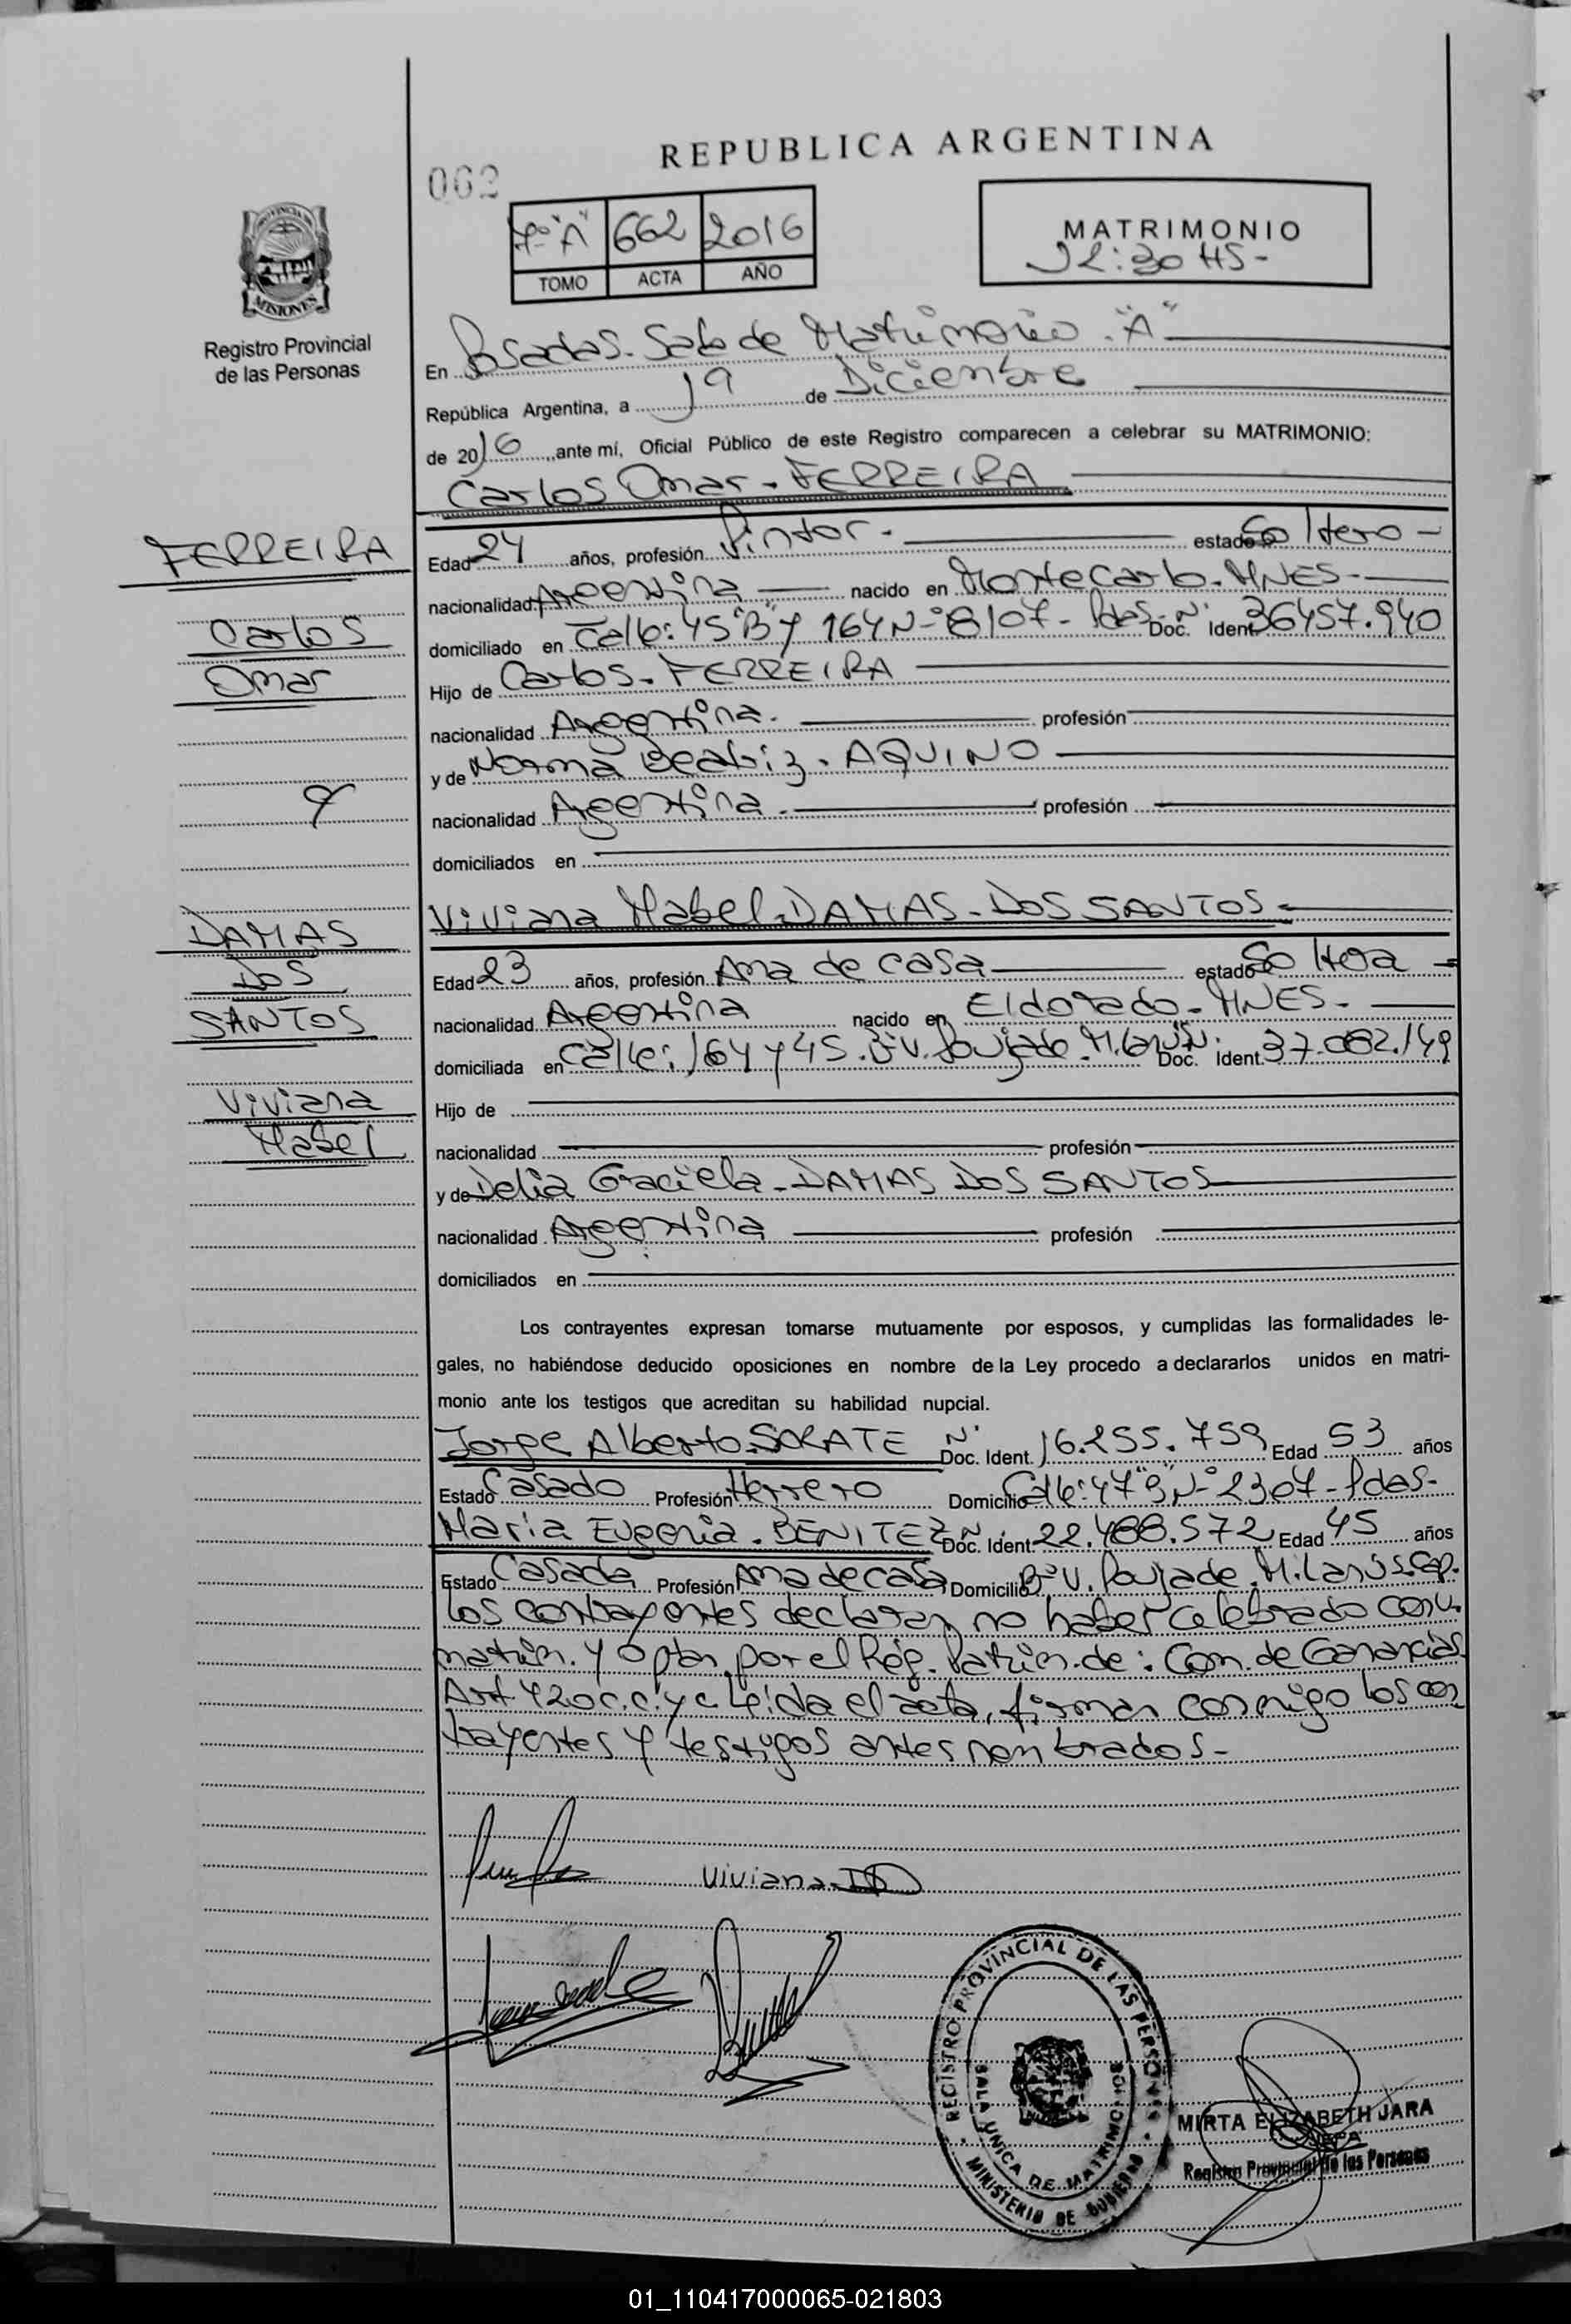 REPUBLICA ARGENTINA
062
7º "A" 662 2016
TOMO ACTA AÑO
MATRIMONIO
12:30 HS-
MISIONES
Registro Provincial
de las Personas
En Posadas. Sala de Matrimonio. "A"
República Argentina, a 19 de Diciembre
de 2016 ante mí, Oficial Público de este Registro comparecen a celebrar su MATRIMONIO:
Carlos Omar - FERREIRA
FERREIRA
Carlos
Omar
Edad 24 años, profesión Pintor. estado Soltero -
nacionalidad Argentina nacido en MonteCarlo. MNES-
domiciliado en Calle: 45"B" y 164 N-º 8107- Pdas- Doc. Nº Ident 36457.940
Hijo de Carlos. FERREIRA
nacionalidad Argentina. profesión
y de Norma Beatriz. AQUINO
nacionalidad Argentina. profesión
domiciliados en
y
DAMAS
DOS
SANTOS
Viviana
Mabel
Viviana Mabel. DAMAS - DOS SANTOS-
Edad 23 años, profesión Ama de casa estado Soltera -
nacionalidad Argentina nacido en Eldorado - MNES-
domiciliada en Calle: 164 y 45. Bº V. Poujade. M. Lanús Doc. Nº Ident. 37.082.149
Hijo de
nacionalidad profesión
y de Delia Graciela - DAMAS DOS SANTOS
nacionalidad Argentina profesión
domiciliados en
Los contrayentes expresan tomarse mutuamente por esposos, y cumplidas las formalidades le-
gales, no habiéndose deducido oposiciones en nombre de la Ley procedo a declararlos unidos en matri-
monio ante los testigos que acreditan su habilidad nupcial.
Jorge Alberto. SORATE Nº Doc. Ident. 16.255.759 Edad 53 años
Estado Casado Profesión Herrero Domicilio Calle: 47"B" N-º 2307 - Pdas-
Maria Eugenia. BENITEZ Nº Doc. Ident. 22.488.572 Edad 45 años
Estado Casada Profesión Ama de casa Domicilio Bº V. Poujade. M. Lanús. Cap.
Los contrayentes declaran no haber celebrado conv.
matrim. y optan por el Rég. Patrim. de: Com. de Ganancias
Art. 420 c.c. y c Leída el acta, firman conmigo los con
trayentes y testigos antes nombrados-
Viviana
REGISTRO PROVINCIAL DE LAS PERSONAS
SALA UNICA DE MATRIMONIOS
MINISTERIO DE GOBIERNO
MIRTA ELIZABETH JARA
JEFA
Registro Provincial de las Personas
01_110417000065-021803